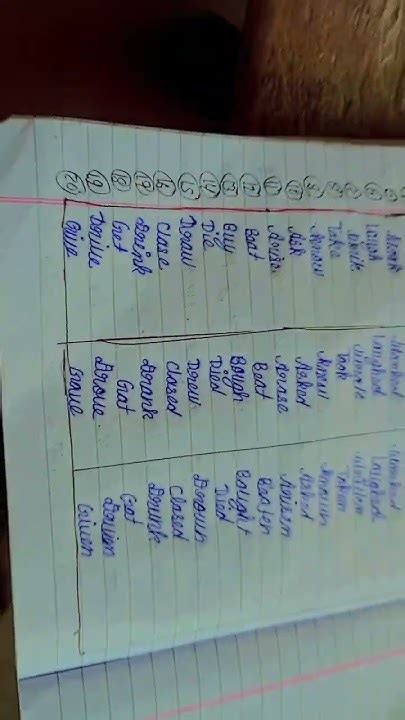 Work Worked Worked
Laugh Laughed Laughed
Write Wrote Written
Take Took Taken
Know Knew Known
10 Ask Asked Asked
11 Arise Arose Arisen
12 Beat Beat Beaten
13 Buy Bough Bought
14 Die Died Died
15 Draw Drew Drown
16 Close Closed Closed
17 Drink Drank Drunk
18 Get Got Got
19 Drive Drove Driven
20 Give Gave Given